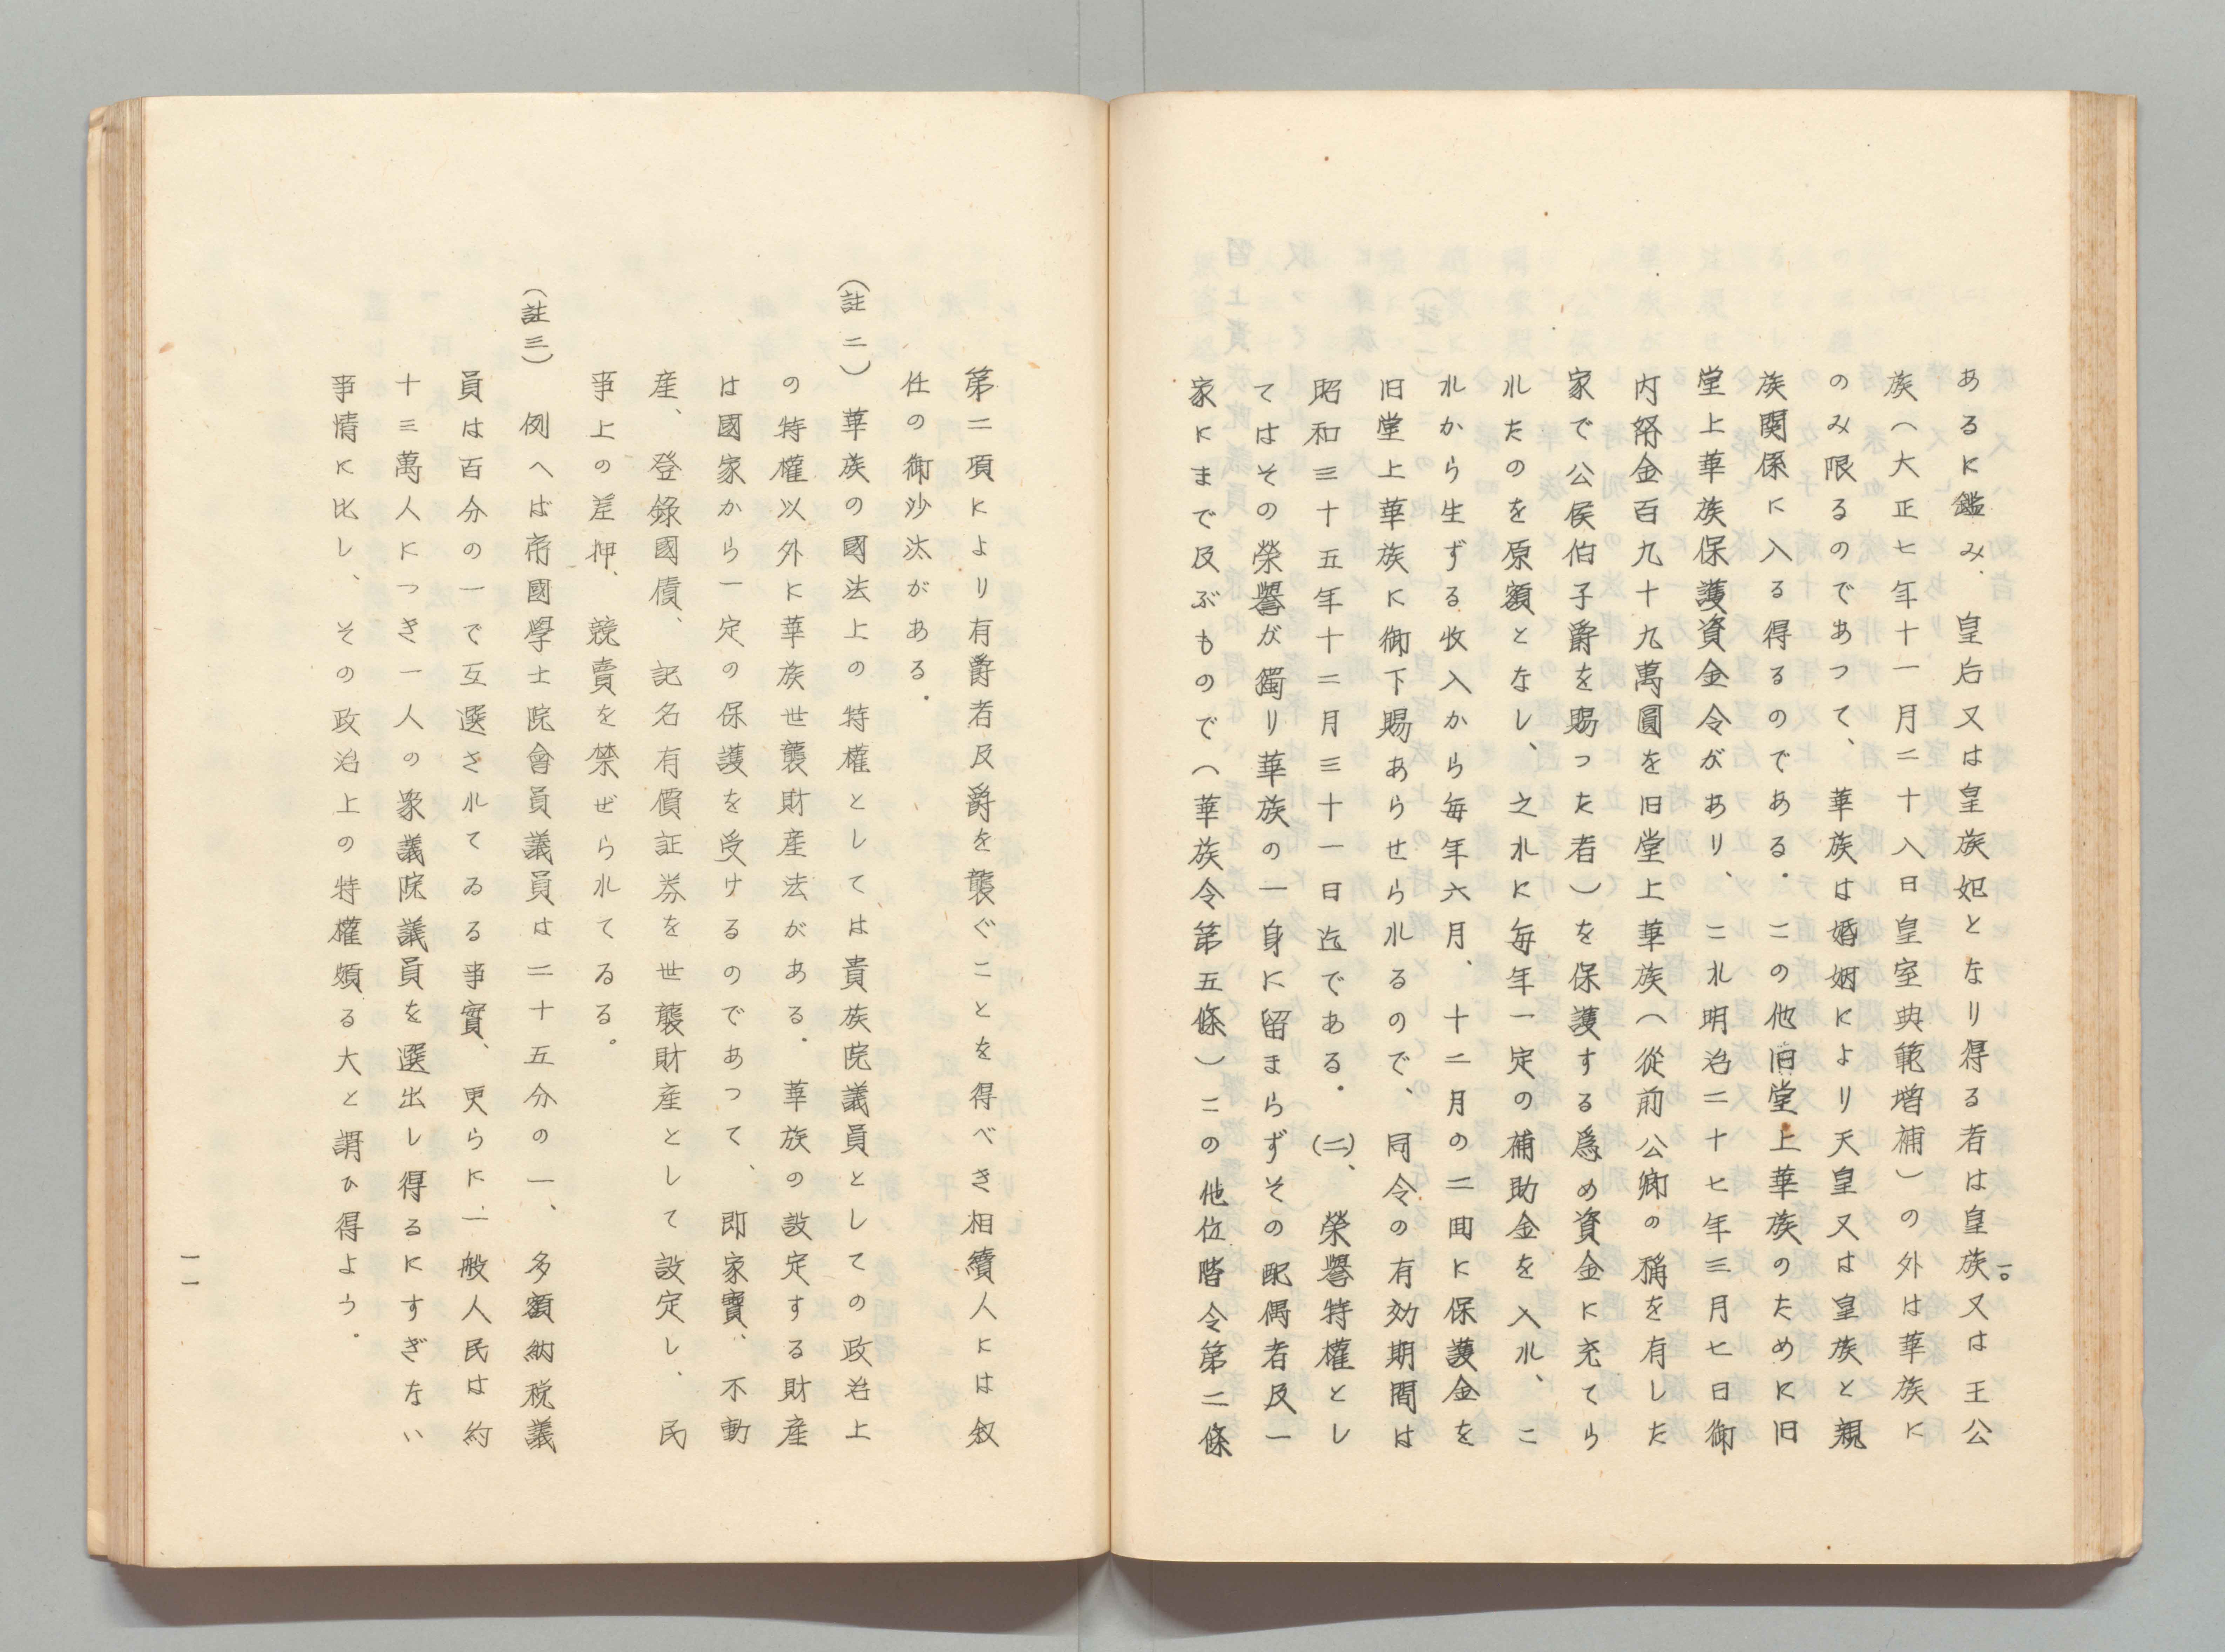 あるに鑑み、皇后又は皇族妃となり得る者は皇族又は王公
族（大正七年十一月二十八日皇室典範増補）の外は華族に
のみ限るのであつて、華族は婚姻により天皇又は皇族と親
族関係に入る得るのである。この他旧堂上華族のために旧
堂上華族保護資金令があり、これ明治二十七年三月七日御
内帑金百九十九萬圓を旧堂上華族（從前公卿の稱を有した
家で公侯伯子爵を賜った者）を保護する爲め資金に充てら
れたのを原額となし、之れに毎年一定の補助金を入れ、こ
れから生ずる收入から毎年六月、十二月の二囘に保護金を
旧堂上華族に御下賜あらせられるので、同令の有効期間は
昭和三十五年十二月三十一日迄である。(二)、榮譽特權とし
てはその榮譽が獨り華族の一身に留まらずその配偶者及一
家にまで及ぶもので（華族令第五條）この他位階令第二條
一〇
第二項により有爵者及爵を襲ぐことを得べき相續人には叙
任の御沙汰がある。
（註二）華族の國法上の特權としては貴族院議員としての政治上
の特權以外に華族世襲財産法がある。華族の設定する財産
は國家から一定の保護を受けるのであって、即家寶、不動
産、登錄國債、記名有價証券を世襲財産として設定し、民
事上の差押、競賣を禁ぜられてゐる。
（註三）例へば帝國學士院會員議員は二十五分の一、多額納税議
員は百分の一で互選されてゐる事實、更らに一般人民は約
十三萬人につき一人の衆議院議員を選出し得るにすぎない
事情に比し、その政治上の特權頗る大と謂ひ得よう。
一一